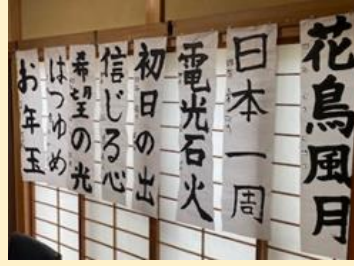 花鳥風月
日本一周
電光石火
初日の出
信じる心
希望の光
はつゆめ
お年玉